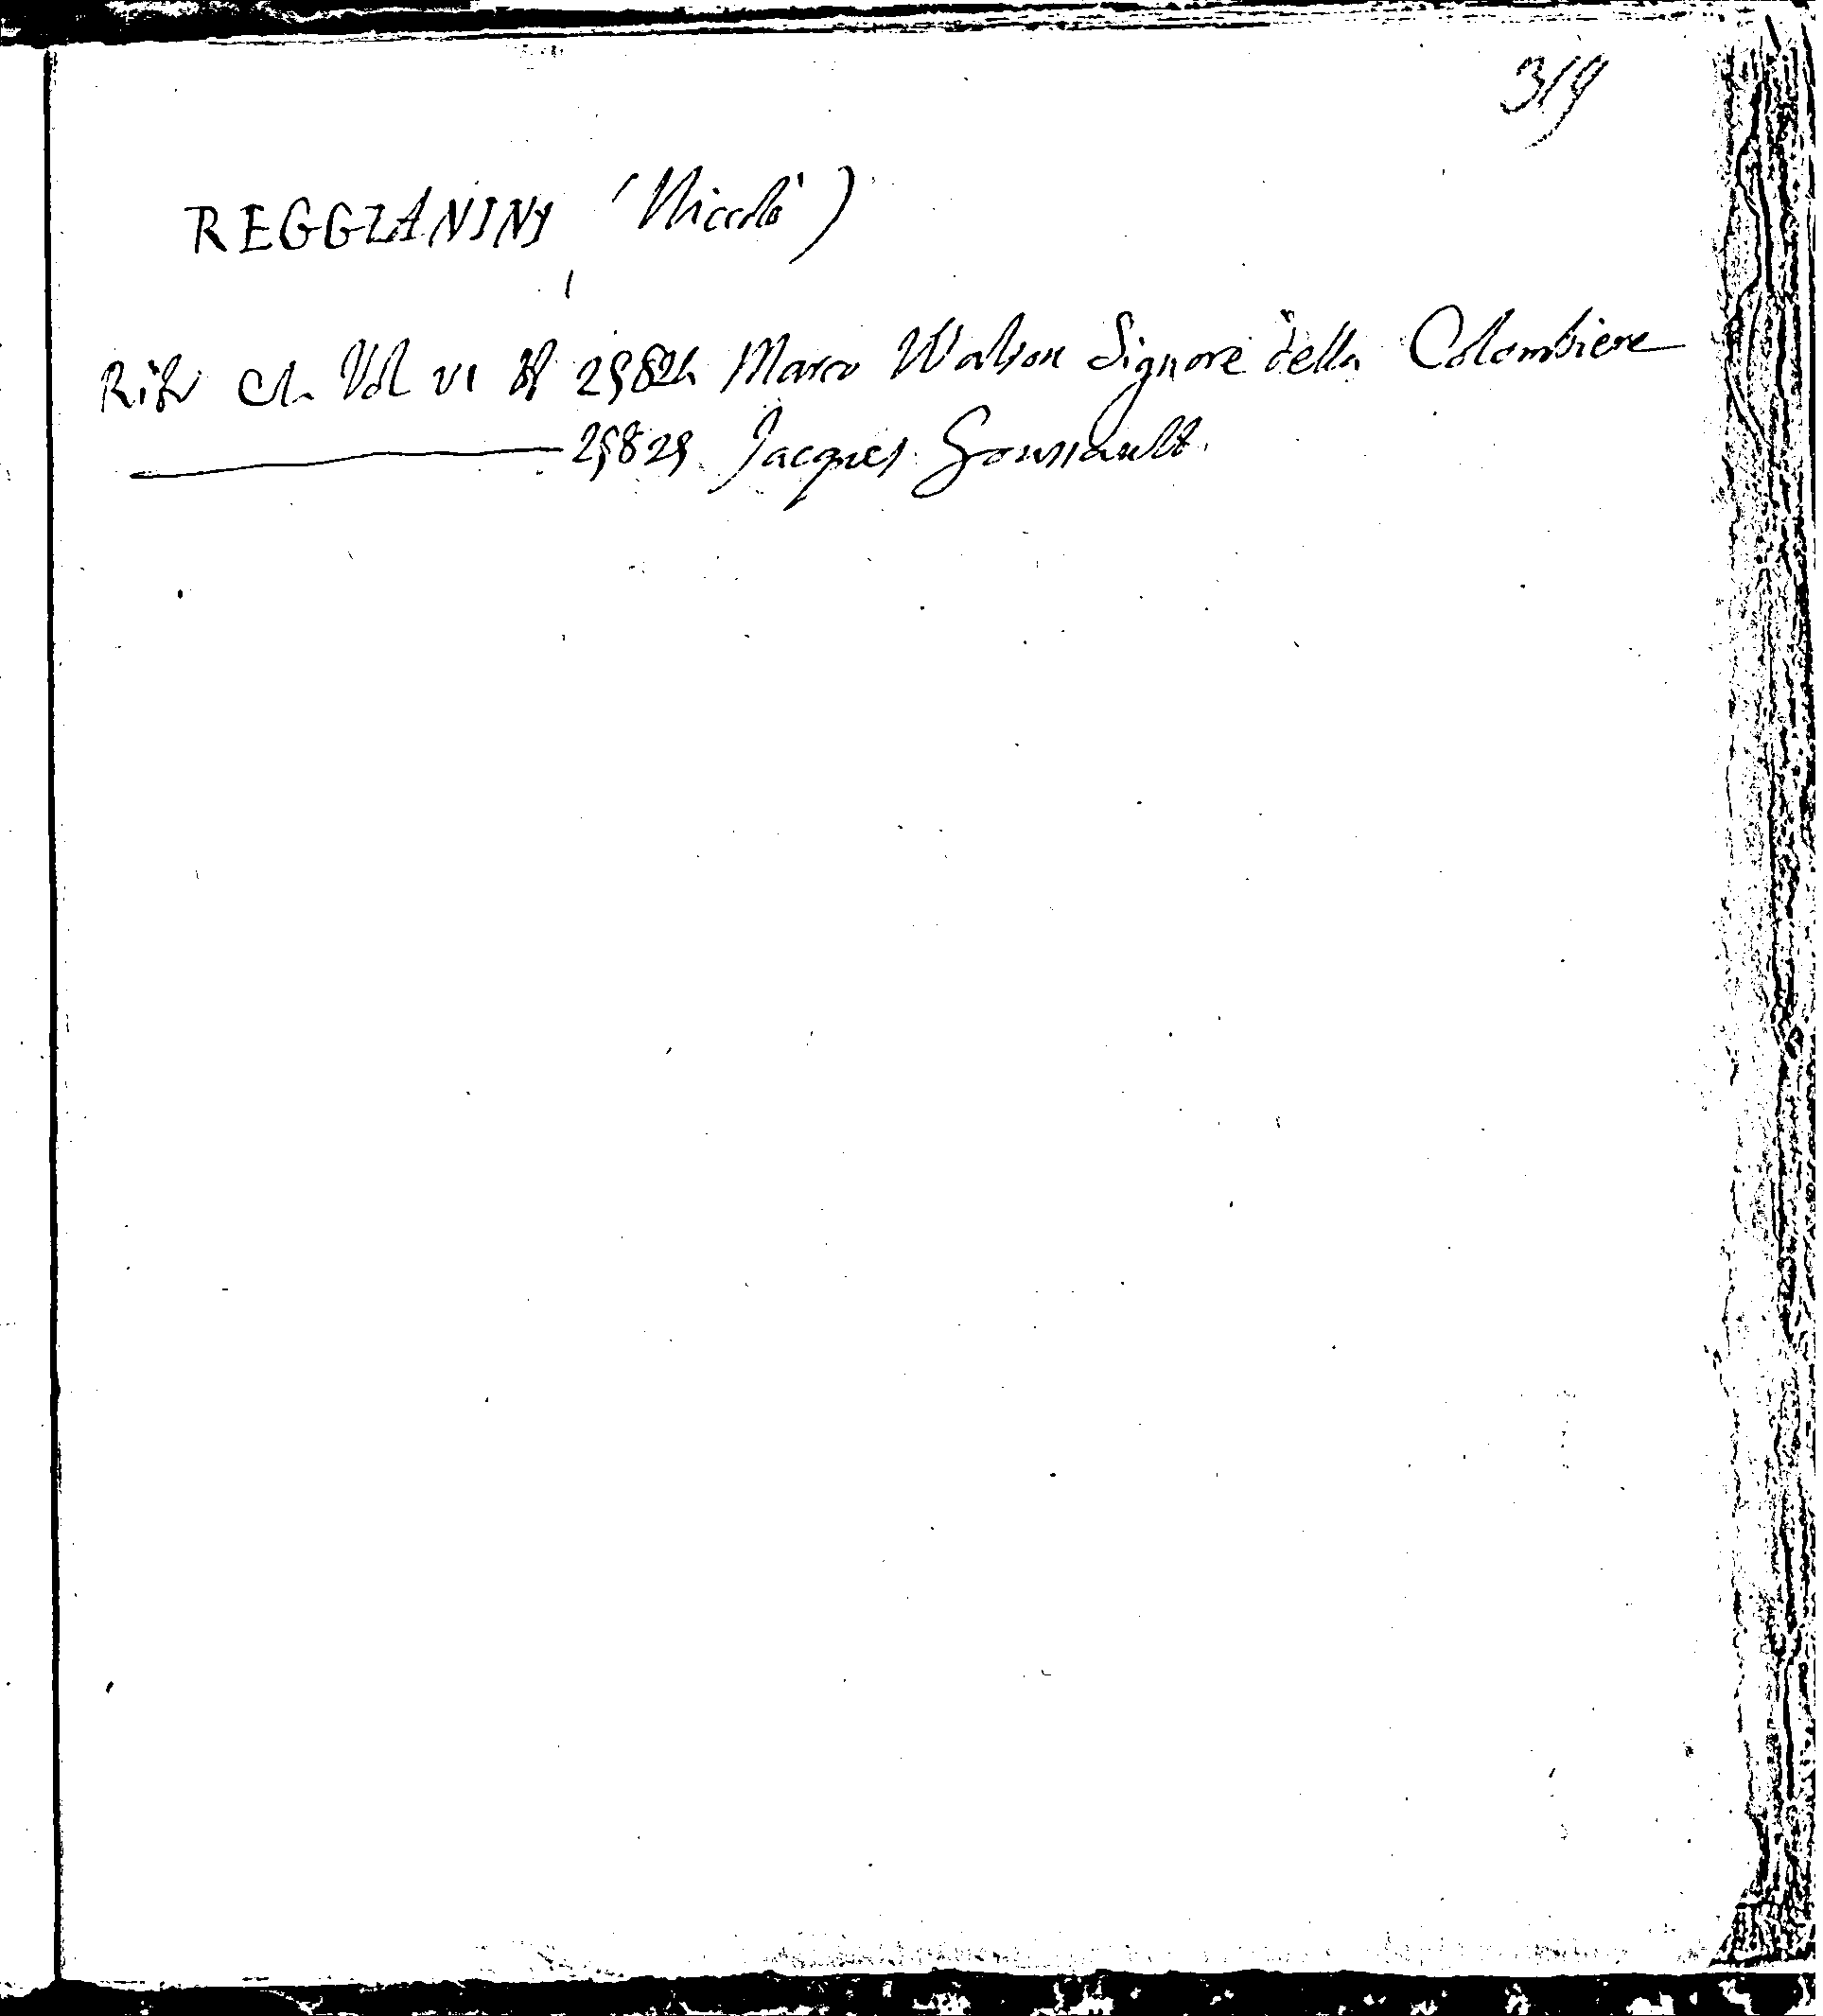 319
REGGIANINY (Niccolò)
Ritr Cl. Vol VI 2582h Marco Walson Signore della Colombiere
25829 Jacques Goussault.